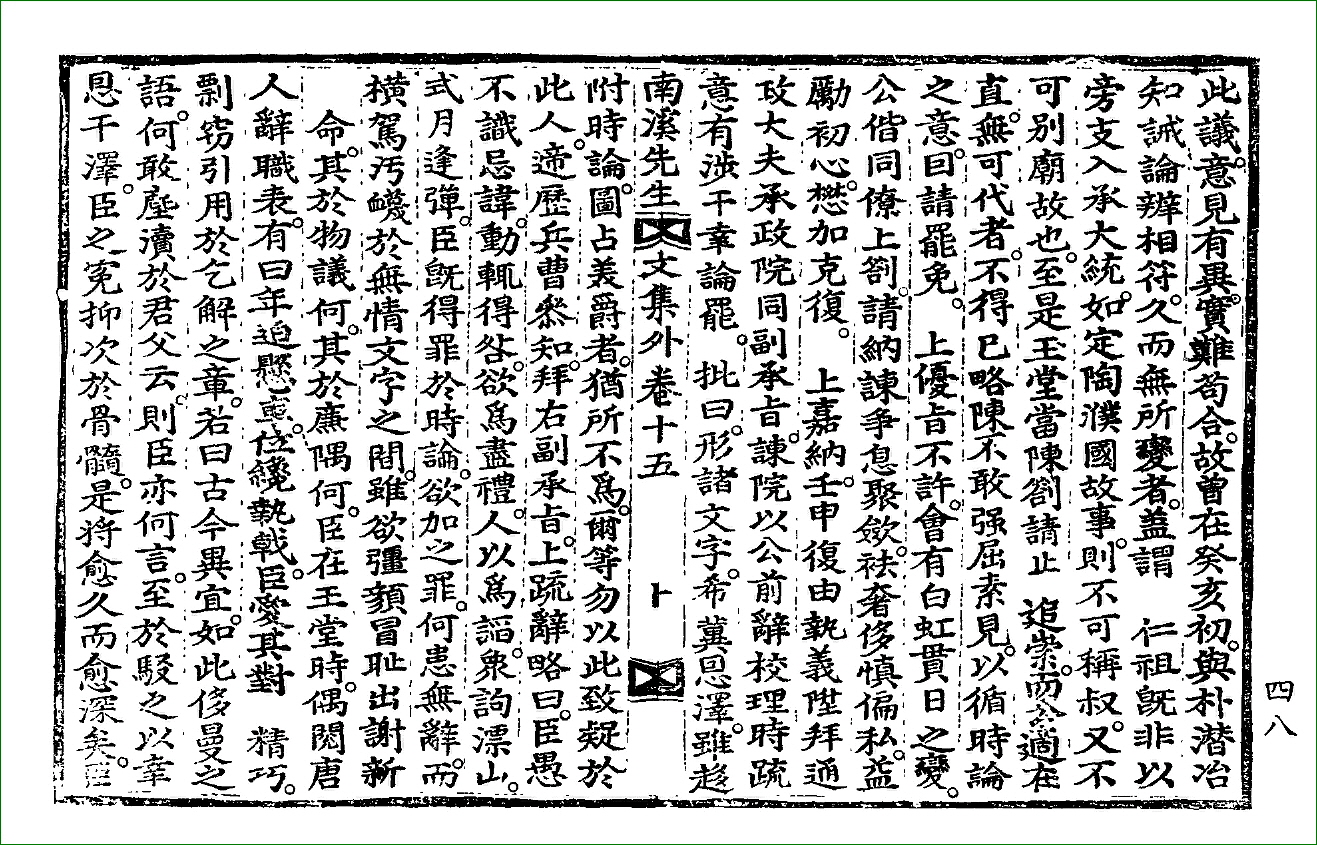 此議意見有異。實難苟合。故曾在癸亥初。與朴潛冶
知誡論辨相符。久而無所變者。蓋謂 仁祖旣非以
旁支入承大統。如定陶濮國故事。則不可稱叔。又不
可別廟故也。至是玉堂當陳劄請止 追崇。而公適在
直。無可代者。不得已略陳不敢强屈素見。以循時論
之意。因請罷免。 上優旨不許。會有白虹貫日之變。
公偕同僚上劄。請納諫爭息聚斂。祛奢侈愼偏私。益
勵初心。懋加克復。 上嘉納。壬申復由執義陞拜通
政大夫承政院同副承旨。諫院以公前辭校理時疏
意有涉干幸論罷。 批曰。形諸文字。希冀恩澤。雖趍
南溪先生文集外卷十五 卜
附時論。圖占美爵者。猶所不爲。爾等勿以此致疑於
此人。遞歷兵曹參知。拜右副承旨。上疏辭略曰。臣愚
不識忌諱。動輒得咎。欲爲盡禮。人以爲謟。衆訽漂山。
式月逢彈。臣旣得罪於時論。欲加之罪。何患無辭。而
橫駕汚衊於無情文字之間。雖欲彊顔冒耻出謝新
命。其於物議何。其於廉隅何。臣在玉堂時。偶閱唐
人辭職表。有曰年迫懸車。位纔執戟。臣愛其對 精巧。
剽竊引用於乞解之章。若曰古今異宜。如此侈曼之
語。何敢塵瀆於君父云。則臣亦何言。至於駁之以幸
恩干澤。臣之寃抑次於骨髓。是將愈久而愈深矣。臣
四八